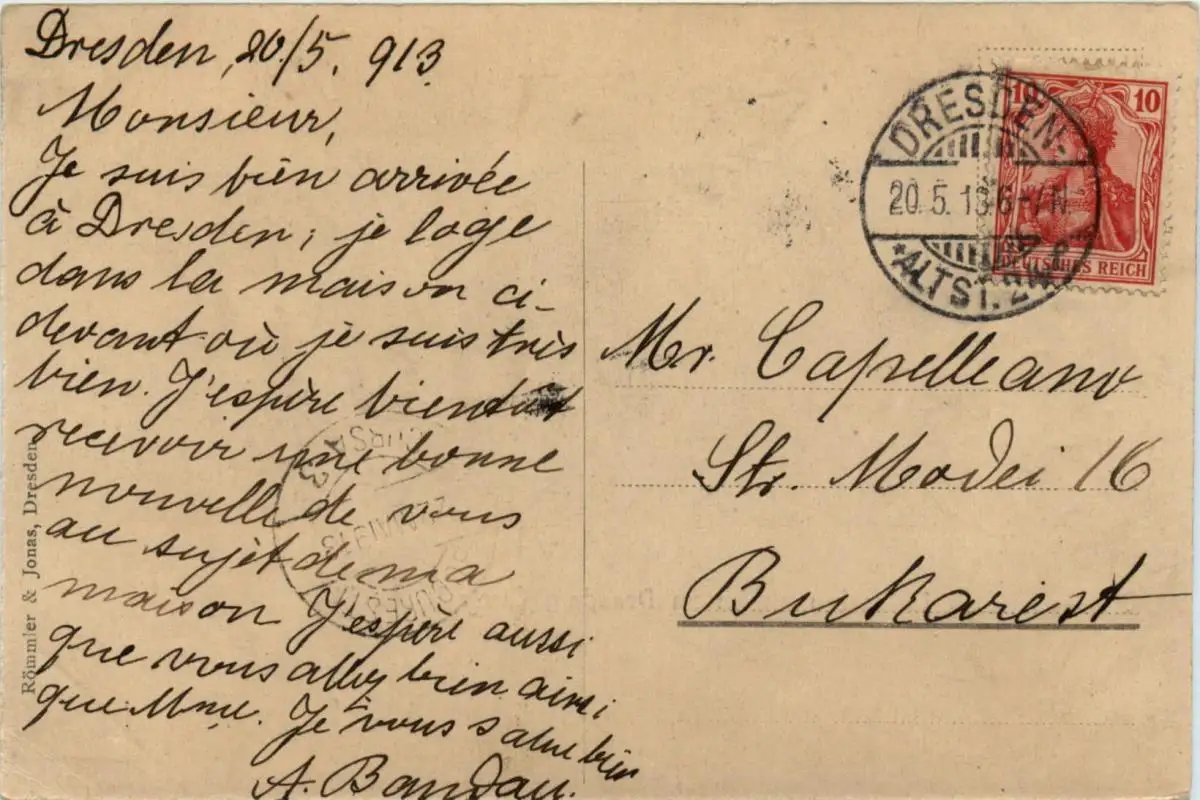 Dresden, 20/5. 913
Monsieur,
Je suis bien arrivée
à Dresden; je loge
dans la maison ci-
devant où je suis très
bien. J'espère bientôt
recevoir une bonne
nouvelle de vous
au sujèt de ma
maison J'espère aussi
que vous allez bien ainsi
que Mme. Je vous salue bien
A. Bandau.
Römmler & Jonas, Dresden
DRESDEN-
20.5.13.6-7N
*ALTST.
10 10
DEUTSCHES REICH
Mr. Capelleano
Str. Modei 16
Bukarest